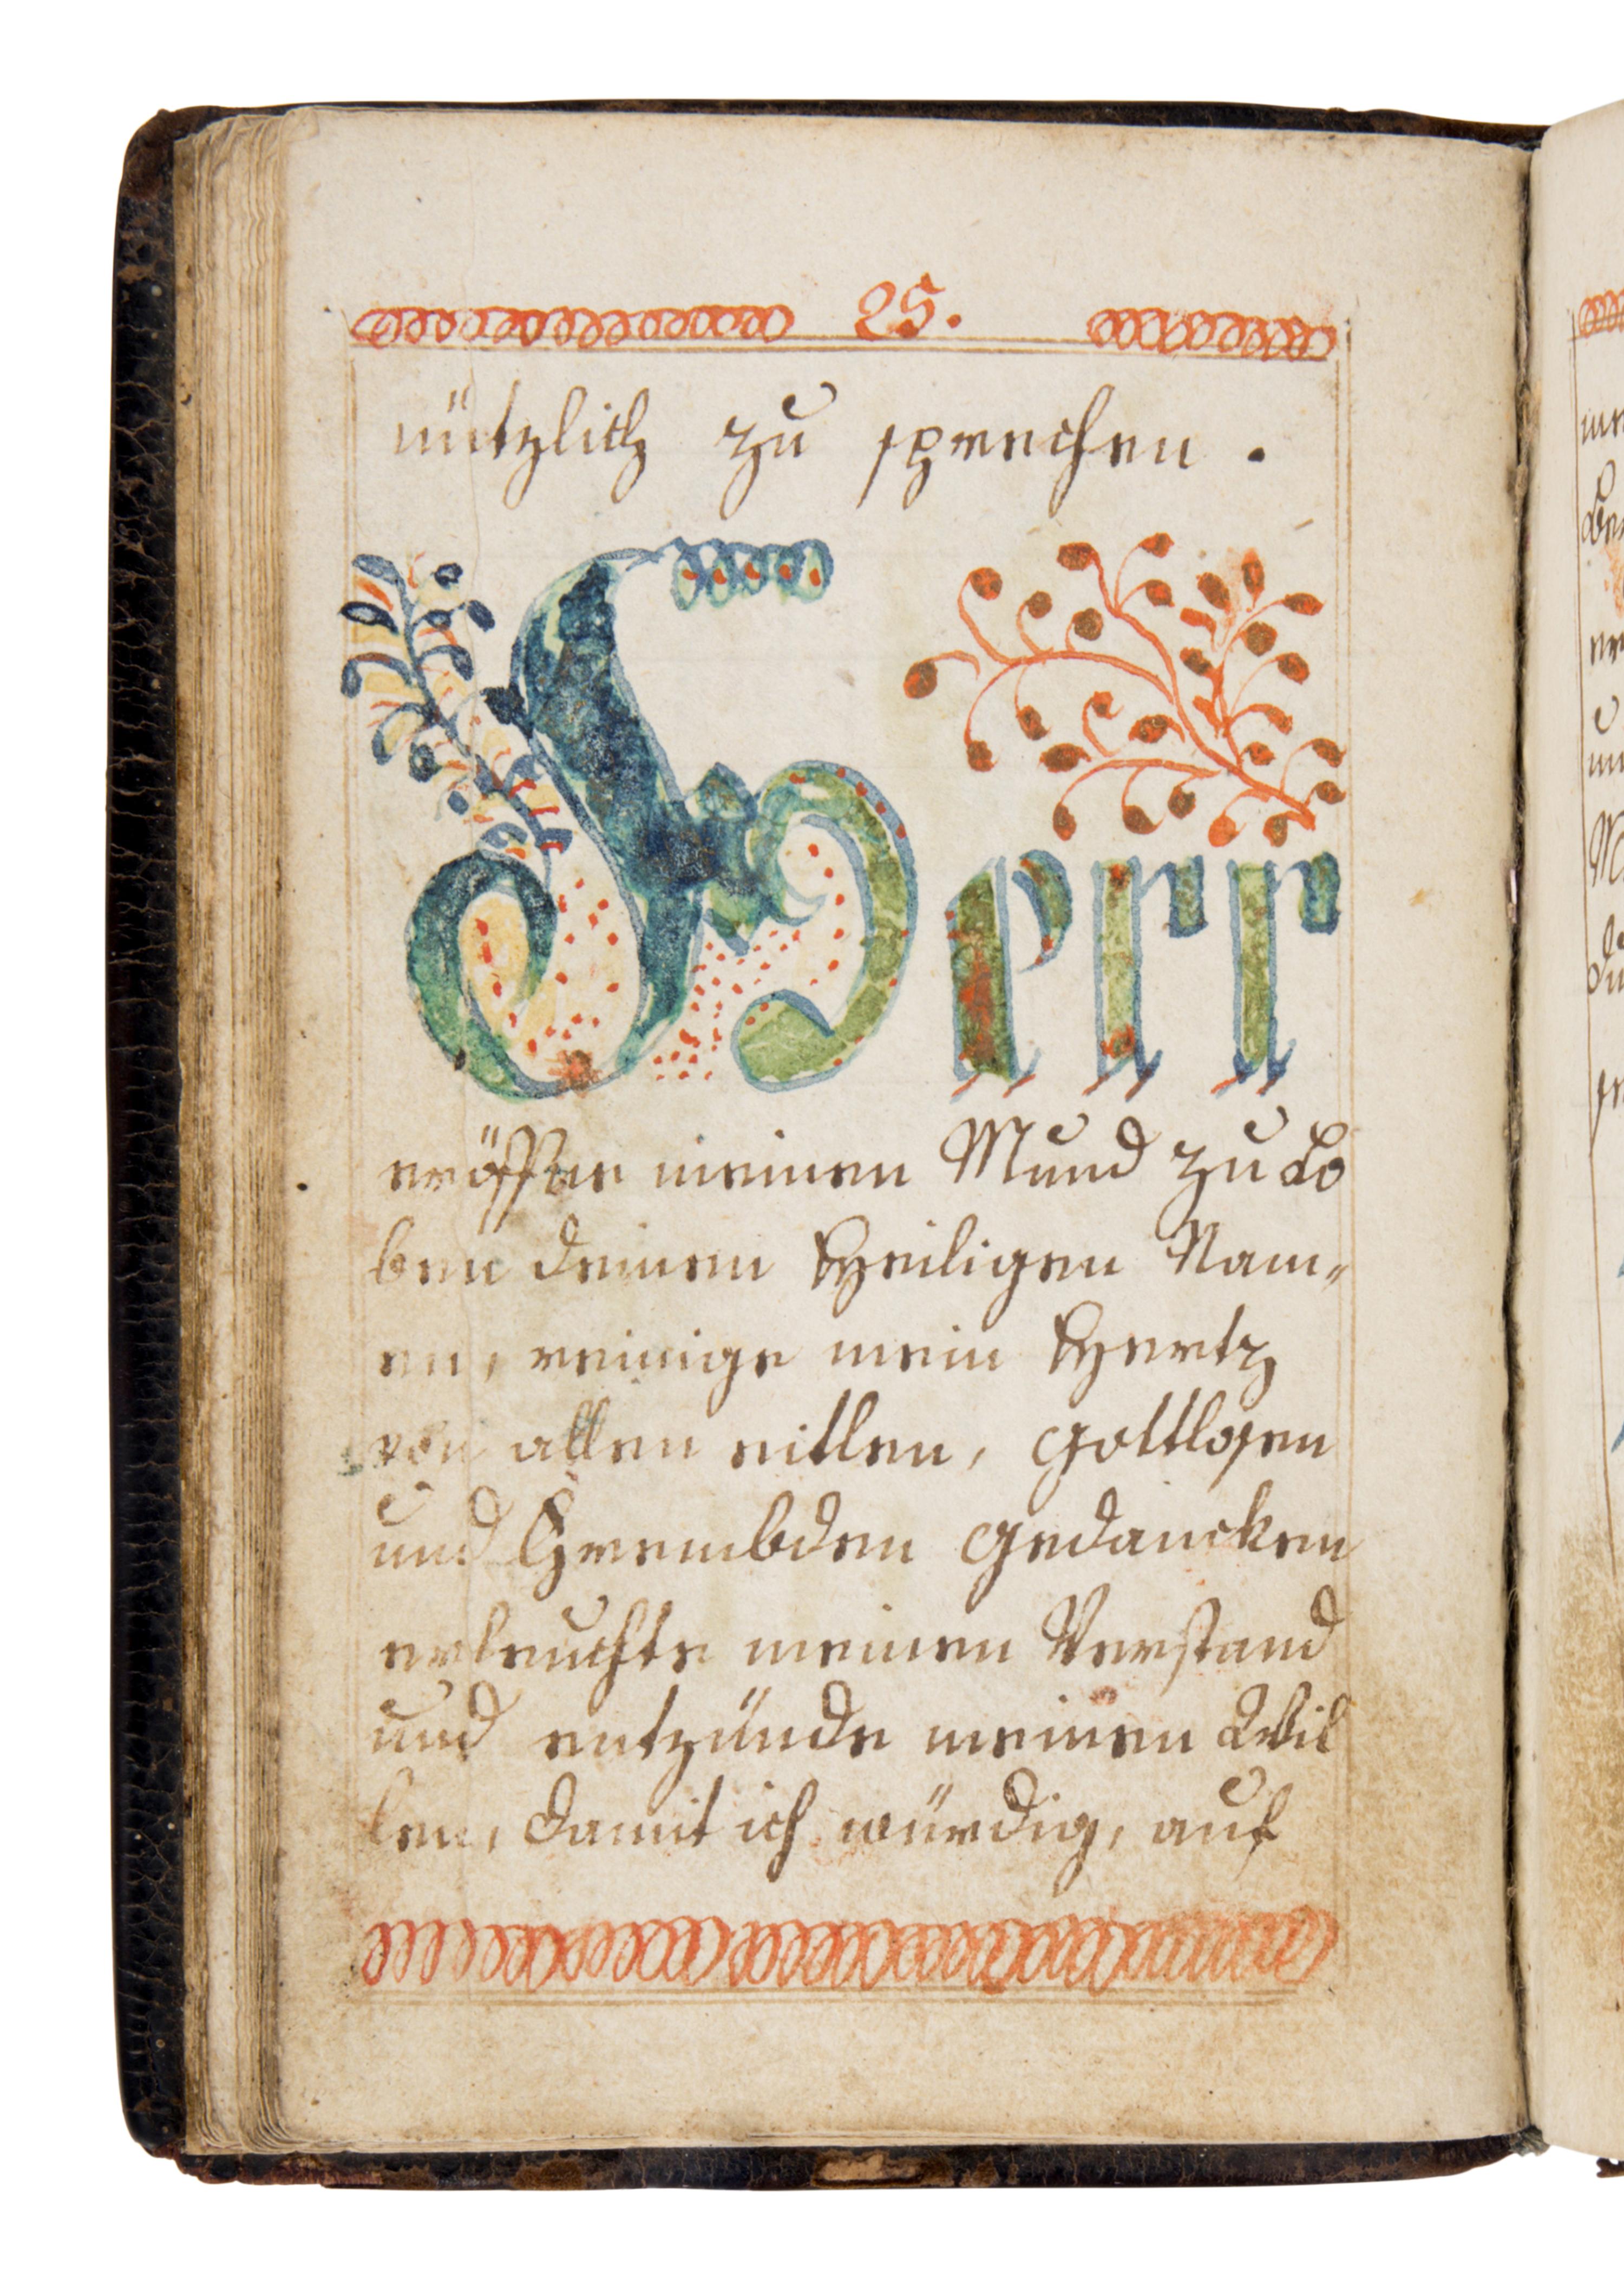 25.
nützlich zu sprechen.
Herr
eröffne meinen Mund zu Lo
ben deinen Heiligen Nam„
en, reinige mein Hertz
von allen eitlen, gottlosen
und frembden gedancken
erleuchte meinen Verstand
und entzünde meinen Wil
len, damit ich würdig, auf